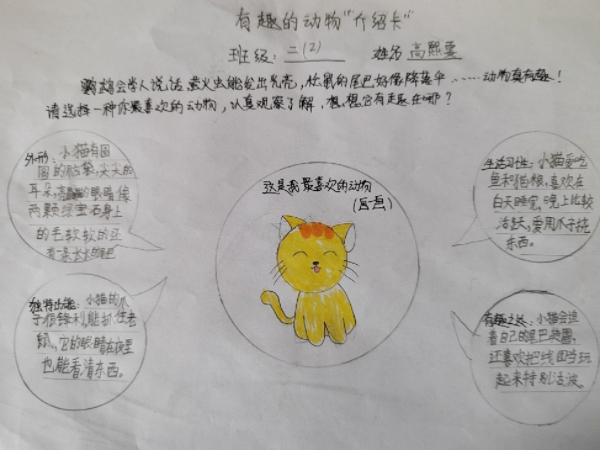 有趣的动物“介绍卡”
班级：二(2) 姓名 高熙雯
鹦鹉会学人说话，萤火虫能发出光亮，松鼠的尾巴好像降落伞……动物真有趣！
请选择一种你最喜欢的动物，认真观察了解，想想它有趣在哪？
外形：小猫有圆
圆的脑袋，尖尖的
耳朵，眼睛像
两颗绿宝石身上
的毛软软的还
有一条长长的尾巴
这是我最喜欢的动物
(画一画)
生活习性：小猫爱吃
鱼和猫粮，喜欢在
白天睡觉，晚上比较
活跃，爱用爪子挠
东西。
独特功能：小猫的爪
子很锋利，能抓住老
鼠，它的眼睛在夜里
也能看清东西。
有趣之处：小猫会追
着自己的尾巴转圈，
还喜欢把线团当玩
起来特别活泼。